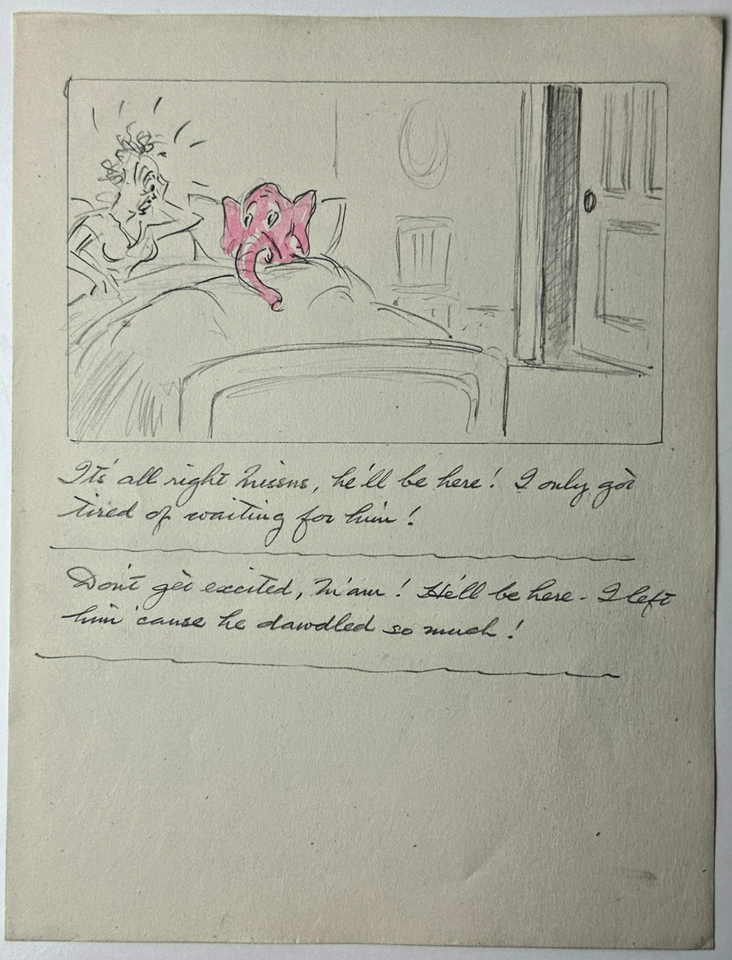 Its' all right Missus, he'll be here! I only got
tired of waiting for him!
Don't get excited, M'am! He'll be here - I left
him 'cause he dawdled so much!